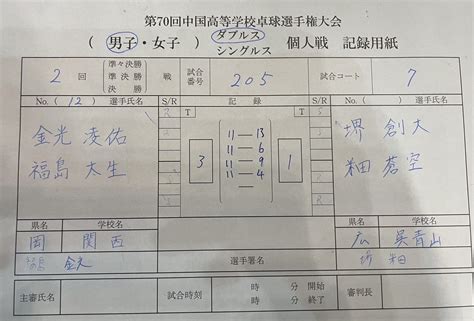 第70回中国高等学校卓球選手権大会
( 男子・女子 ) ダブルス シングルス 個人戦 記録用紙
2 回 準々決勝 準決勝 決勝 戦 試合番号 205 試合コート 7
No. ( 12 ) 選手氏名 S/R 記録 S/R No. ( ) 選手氏名
T T
金光 凌佑 堺 創大
福島 大生 蒼空
3 1
11 — 13
11 — 6
11 — 9
11 — 4
県名 学校名 県名 学校名
岡 関西 広 呉青山
選手署名
主審氏名 試合時刻 時 分 開始 時 分 終了 審判長